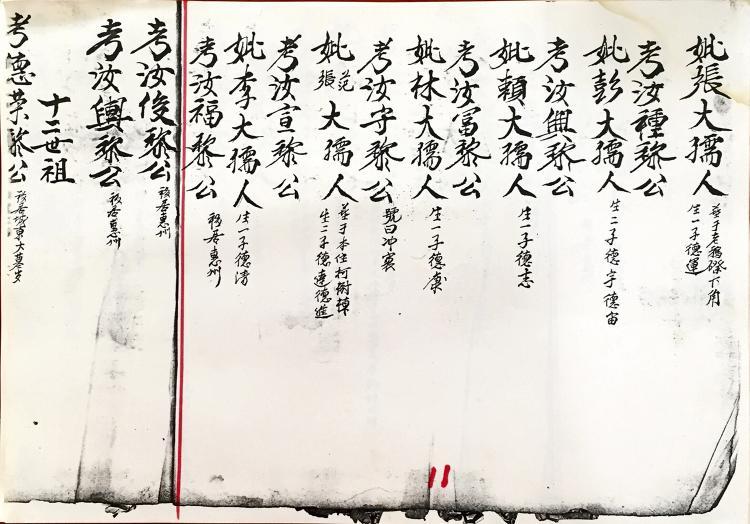 妣張大孺人
葬于老鴉磜下角
生一子德運
考汝種黎公
妣彭大孺人
生二子德宇德宙
考汝興黎公
妣賴大孺人
生一子德志
考汝富黎公
妣林大孺人
生一子德凜
考汝守黎公
號曰冲寰
妣范張大孺人
葬于本住柯樹棟
生二子德達德進
考汝宣黎公
妣李大孺人
生一子德清
考汝福黎公
移居惠州
考汝俊黎公
移居惠州
考汝輿黎公
移居惠州
十二世祖
考德荣黎公
移居城東大墓